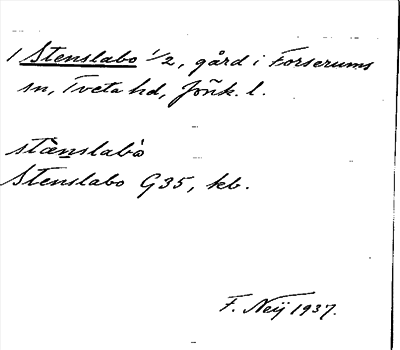 1 Stenslabo 1/2, gård i Forserums
sn, Tveta hd, Jönk. l.
stænslabò
Stenslabo G35, kb.
F. Neij 1937.